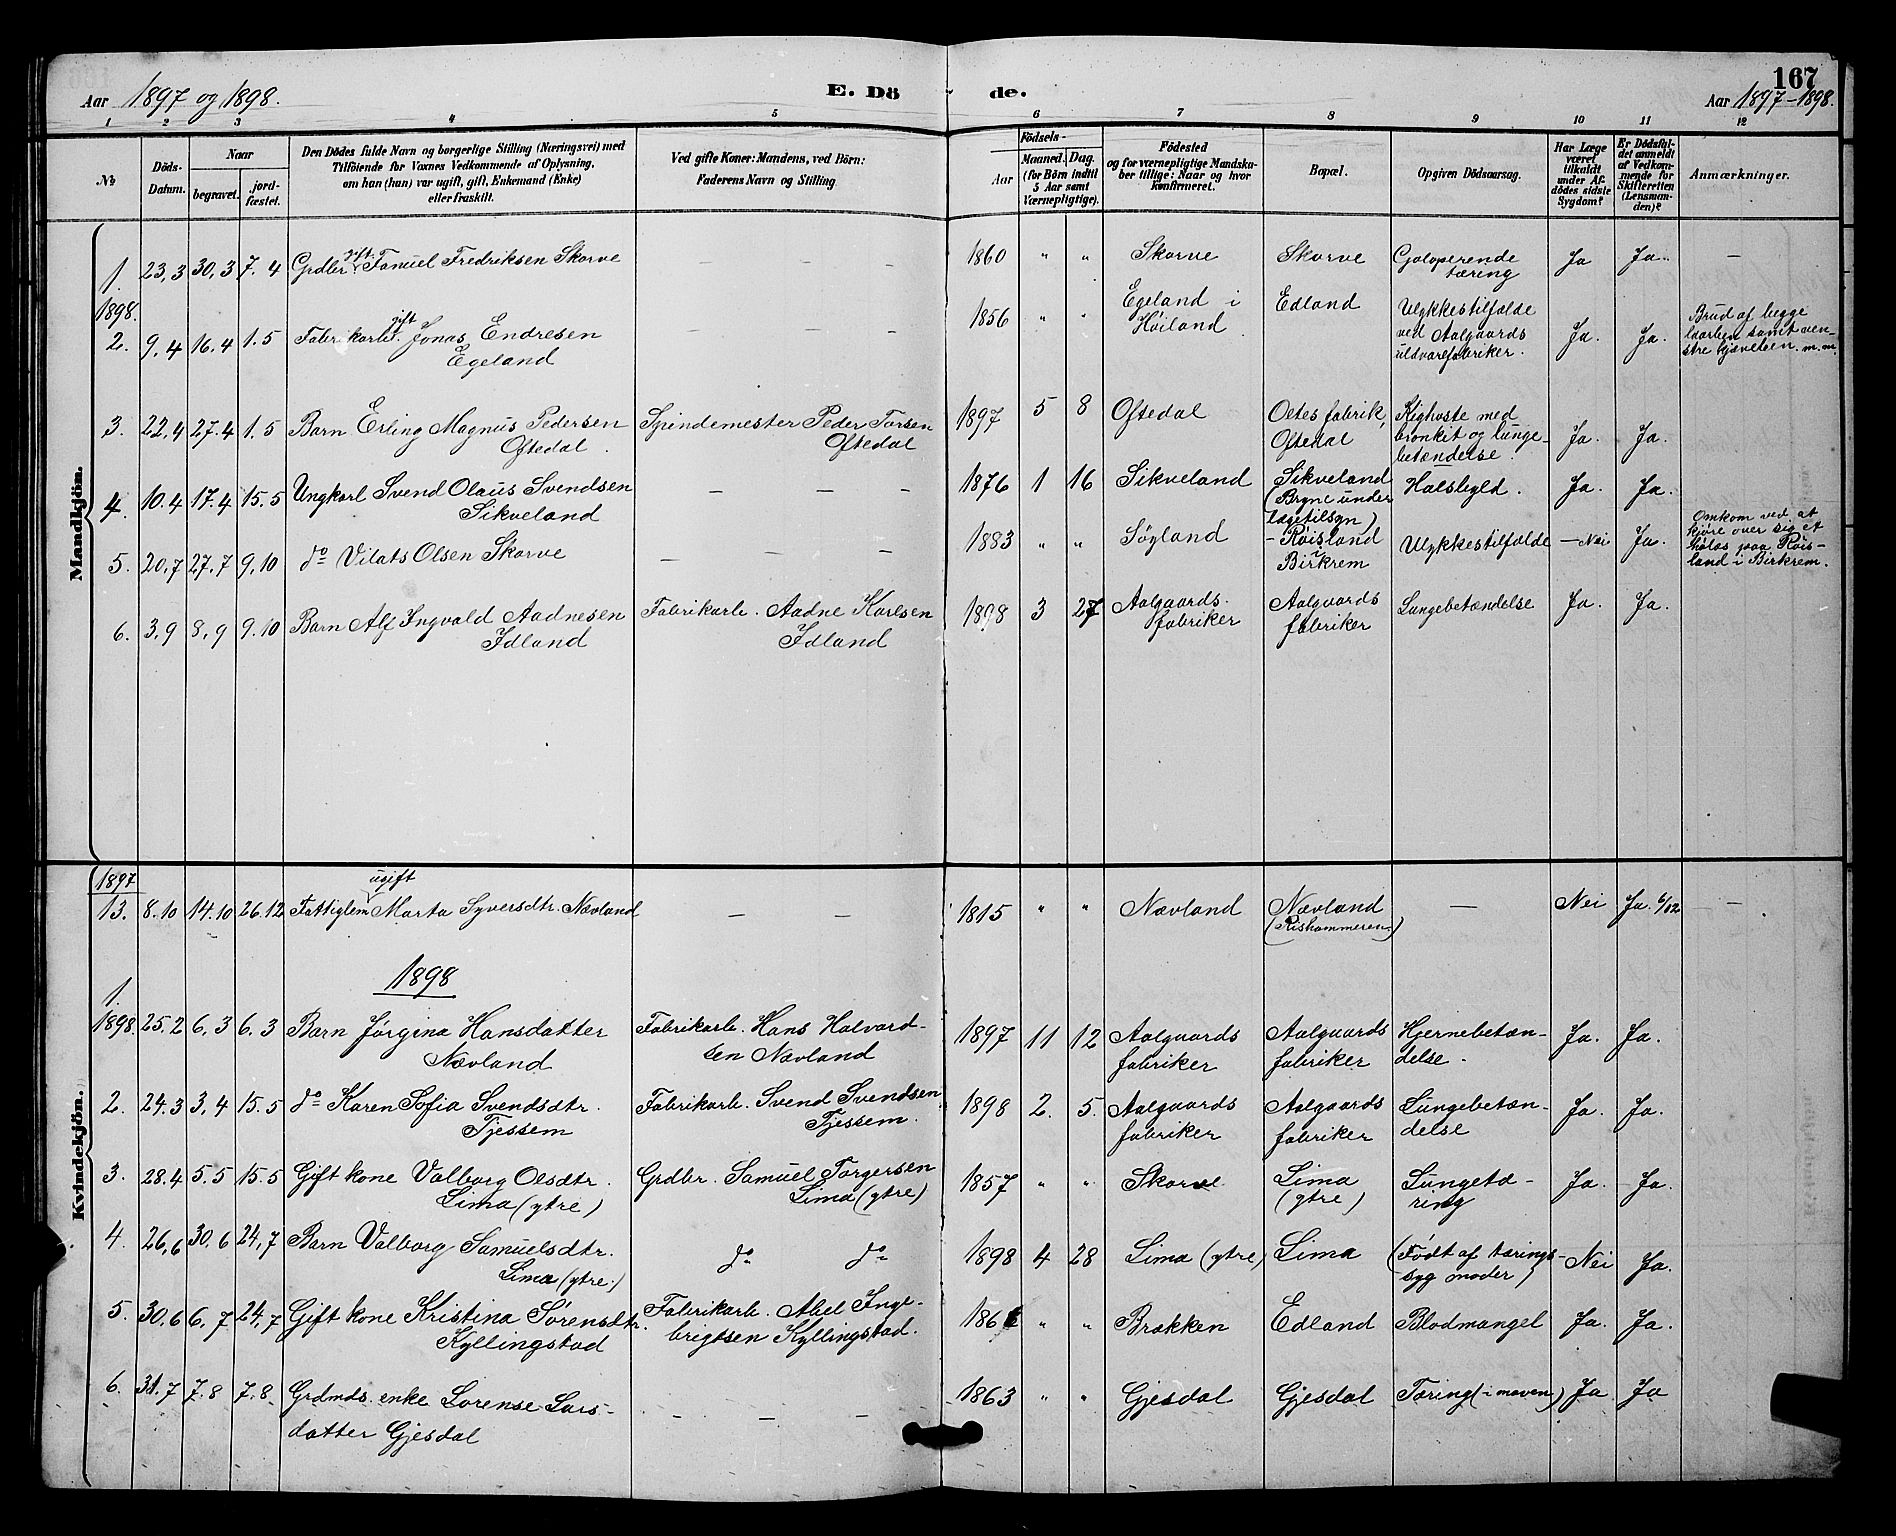 167
Aar 1897 og 1898.
E. Dö de.
Aar 1897–1898.
1 2 3 4 5 6 7 8 9 10 11 12
№
Döds-
Datum.
Naar
begravet.
jord-
fæstet.
Den Dödes fulde Navn og borgerlige Stilling (Næringsvei) med
Tilföiende for Voxnes Vedkommende af Oplysning,
om han (hun) var ugift, gift, Enkemand (Enke)
eller fraskilt.
Ved gifte Koner: Mandens, ved Börn:
Faderens Navn og Stilling.
Födsels-
Aar
Maaned. Dag.
(for Börn indtil
5 Aar samt
Værnepligtige).
Födested
og for værnepligtige Mandska-
ber tillige: Naar og hvor
konfirmeret.
Bopæl.
Opgiven Dödsaarsag.
Har Læge
været
tilkaldt
under Af-
dödes sidste
Sygdom?
Er Dödsfal-
det anmeldt
af Vedkom-
mende for
Skifteretten
(Lensman-
den)?
Anmærkninger.
Mandkjön.
1. 23,3 30,3 7.4 Grdbr. gift Samuel Fredriksen Skorve — — — 1860 " " Skorve Skorve Galoperende
tæring Ja Ja. —
1898.
2. 9.4 16.4 1.5 Fabrikarb. gift Jonas Endresen
Egeland — — — 1856 " " Egeland i
Høiland Edland Ulykkestilfælde
ved Aalgaards
uldvarefabriker. Ja. Ja. Brud af begge
laarben samt ven-
stre kjæveben. m.m.
3. 22,4 27.4 1.5 Barn Erling Magnus Pedersen
Oftedal. Spindemester Peder Torsen
Oftedal 1897 5 8 Oftedal Oetes fabrik,
Oftedal Kighoste med
bronkit og lunge-
betændelse. Ja. Ja.
4. 10.4 17.4 15.5 Ungkarl Svend Olaus Svendsen
Sikveland — — — 1876 1 16 Sikveland Sikveland
(Bryne under
lægetilsyn) Halsbyld. Ja. Ja.
5. 20,7 27,7 9,10 do Vilats Olsen Skorve — — — 1883 " " Søyland – Røisland
Birkrem Ulykkestilfælde — Nei Ja. Omkom ved at
kjøre over sig et
hølas paa Røis-
land i Birkrem.
6. 3,9 8,9 9.10 Barn Alf Ingvald Aadnesen
Idland Fabrikarb. Aadne Karlsen
Idland 1898 3 27 Aalgaards.
fabriker Aalgaards
fabriker Lungebetændelse Ja. Ja.
Kvindekjön.
1897
13. 8.10 14.10 26.12 Fattiglem ugift Marta Syversdtr. Nævland — — 1815 " " Nævland Nævland
(Riskammeren) — Nei Ja. 6/12 —
1898
1.
1898. 25,2 6,3 6.3 Barn Jørgina Hansdatter
Nævland Fabrikarb. Hans Halvard-
sen Nævland 1897 11 12 Aalgaards
fabriker Aalgaards
fabriker Hjernebetæn-
delse. Ja. Ja.
2. 24.3 3,4 15.5 do Karen Sofia Svendsdtr.
Tjessem Fabrikarb. Svend Svendsen
Tjessem. 1898 2. 5. Aalgaards
fabriker Aalgaards
fabriker Lungebetæn-
delse Ja. Ja.
3. 28.4 5.5 15.5 Gift kone Valborg Olsdtr.
Lima (ytre) Grdbr. Samuel Torgersen
Lima (ytre) 1857 " " Skorve Lima
(ytre) Lungetæ-
ring Ja. Ja.
4. 26,6 30.6 24,7 Barn Valborg Samuelsdtr.
Lima (ytre.) do do 1898 4 28 Lima (ytre) Lima (Født af tærings-
syg moder) Nei Ja.
5. 30.6 6,7 24,7 Gift kone Kristina Sørensdtr.
Kyllingstad Fabrikarb. Abel Inge-
brigtsen Kyllingstad. " " Brækken Edland Blodmangel Ja. Ja.
6. 31.7 7.8 7.8 Grdmds. enke Lorense Lars-
datter Gjesdal — — — 1863 " " Gjesdal Gjesdal Tæring (i maven) Ja Ja